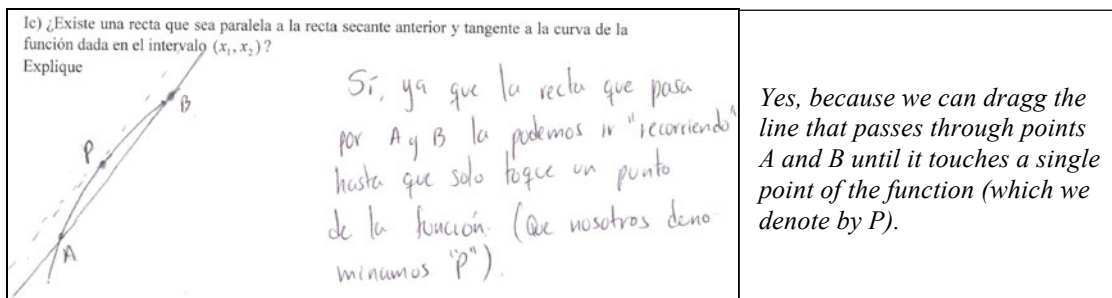 Ic) ¿Existe una recta que sea paralela a la recta secante anterior y tangente a la curva de la
función dada en el intervalo (x₁, x₂)?
Explique
B
P
A
Sí, ya que la recta que pasa
por A y B la podemos ir "recorriendo"
hasta que solo toque un punto
de la función. (Que nosotros deno
minamos "P").
Yes, because we can dragg the
line that passes through points
A and B until it touches a single
point of the function (which we
denote by P).